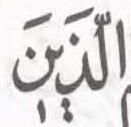 الَّذَيَنَ